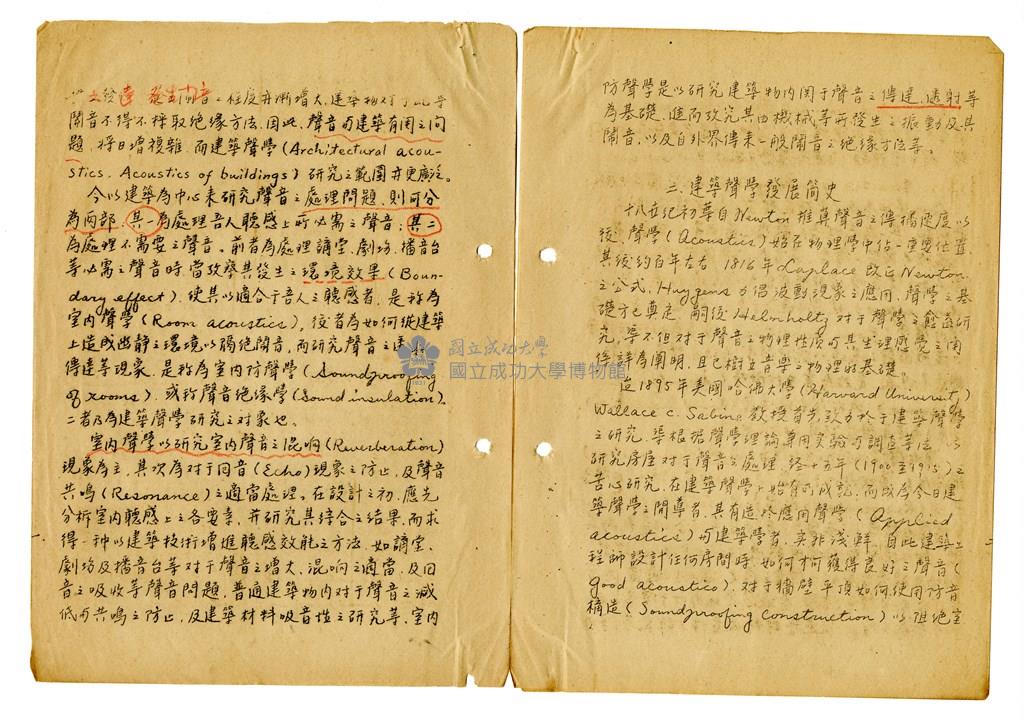 之發達 發生鬧音之程度亦漸增大,建築物對于此等
鬧音不得不採取絕緣方法.因此,聲音与建築有関之问
題,将日增複雜.而建築聲學(Architectural acou-
stics. Acoustics of buildings)研究之範圍亦更廣泛。
今以建築為中心来研究聲音之處理問題,則可分
為兩部.其一為處理吾人聽感上所必需之聲音;其二
為處理不需要之聲音。前者為處理講堂.劇坊.播音台
等必需之聲音時,當攷察其發生之環境效果(Boun-
dary effect).使其以適合于吾人之聽感者.是称為
室内聲學(Room acoustics),後者為如何從建築
上造成幽静之環境以弱绝鬧音,而研究聲音之透
傳達等現象.是称為室内防聲學(Soundproofing
of rooms).或称聲音绝缘學(Sound insulation).
二者乃為建築聲學研究之对象也。
室内聲學以研究室内聲音之混响(Reverberation)
現象為主,其次為对于回音(Echo)現象之防止,及聲音
共鳴(Resonance)之適當處理。在設計之初,應先
分析室内聽感上之各要素,并研究其綜合之结果.而求
得一种以建築技術增進聽感效能之方法.如講堂.
劇坊及播音台等对于聲音之增大、混响之適當,及回
音之吸收等聲音問題.普通建築物内对于聲音之減
低与共鳴之防止,及建築材料吸音性之研究等.室内
防聲學是以研究建築物内関于聲音之傳達.透射等
為基礎,進而攷究其由機械等所發生之振動及其
鬧音,以及自外界傳来一般鬧音之绝緣方法等。
三.建築聲學發展简史
十八世纪初葉自Newton推算聲音之傳播速度以
後,聲學(Acoustics)始在物理學中佔一重要位置.
其後約百年左右 1816年Laplace改正Newton
之公式,Huygens力倡波動現象之應用,聲學之基
礎方已奠定.嗣後Helmholtz对于聲學之愈益研
究,等不但对于聲音之物理性质与其生理感觉之関
係詳為闡明,且已樹立音樂之物理的基礎。
迨1895年美國哈佛大學(Harvard University)
Wallace C. Sabine教授首先致力於于建築聲學
之研究.渠根据聲學理論兼用实驗与調查等法
研究房屋对于聲音之處理.经十五年(1900至1915)之
苦心研究.在建築聲學上始有所成就.而成為今日建
築聲學之開導者.其有造於應用聲學(Applied
acoustics)与建築學者,实非淺鮮.自此建築工
程師設計任何房間時,如何才可獲得良好之聲音(
good acoustics).对于牆壁平頂如何使用防音
構造(Soundproofing construction)以阻绝室
國立成功大學
國立成功大學博物館
1931